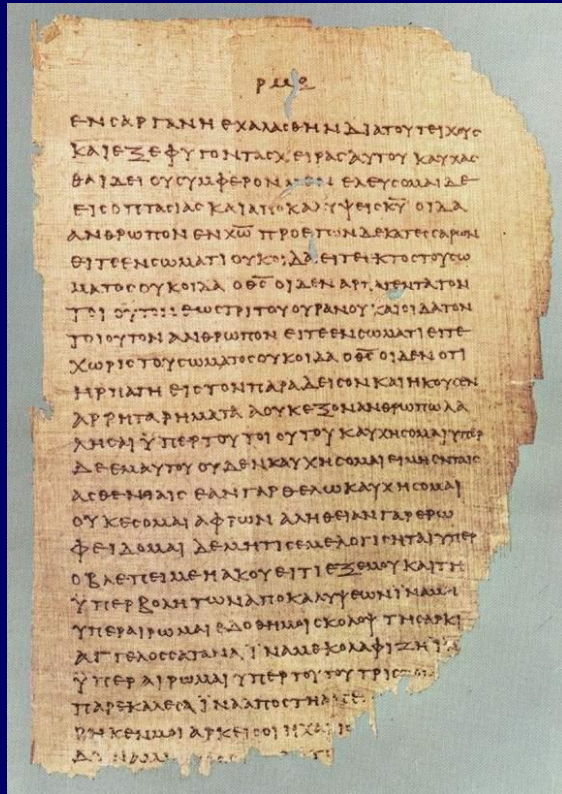 ΕΝϹΑΡΓΑΝΗΕΧΑΛΑϹΘΗΝΔΙΑΤΟΥΤΕΙΧΟΥϹ
ΚΑΙΕΞΕΦΥΓΟΝΤΑϹΧΕΙΡΑϹΑΥΤΟΥΚΑΥΧΑϹ
ΘΑΙΔΕΙΟΥϹΥΜΦΕΡΟΝ ΕΛΕΥϹΟΜΑΙΔΕ
ΕΙϹΟΠΤΑϹΙΑϹΚΑΙΑΠΟΚΑΛΥΨΕΙϹΚ̅Υ̅ΟΙΔΑ
ΑΝΘΡΩΠΟΝΕΝΧ̅Ω̅ΠΡΟΕΤΩΝΔΕΚΑΤΕϹϹΑΡΩΝ
ΕΙΤΕΕΝϹΩΜΑΤΙΟΥΚΟΙΔΑΕΙΤΕΙΚΤΟϹΤΟΥϹΩ
ΜΑΤΟϹΟΥΚΟΙΔΑΟΘ̅Ϲ̅ΟΙΔΕΝΑΡΠΑΓΕΝΤΑΤΟΝ
ΤΟΙΟΥΤΟΝΕΩϹΤΡΙΤΟΥΟΥΡΑΝΟΥΚΑΙΟΙΔΑΤΟΝ
ΤΟΙΟΥΤΟΝΑΝΘΡΩΠΟΝΕΙΤΕΕΝϹΩΜΑΤΙΕΙΤΕ
ΧΩΡΙϹΤΟΥϹΩΜΑΤΟϹΟΥΚΟΙΔΑΟΘ̅Ϲ̅ΟΙΔΕΝΟΤΙ
ΗΡΠΑΓΗΕΙϹΤΟΝΠΑΡΑΔΕΙϹΟΝΚΑΙΗΚΟΥϹΕΝ
ΑΡΡΗΤΑΡΗΜΑΤΑΑΟΥΚΕΞΟΝΑΝΘΡΩΠΩΛΑ
ΛΗϹΑΙΫΠΕΡΤΟΥΤΟΙΟΥΤΟΥΚΑΥΧΗϹΟΜΑΙΥΠΕΡ
ΔΕΕΜΑΥΤΟΥΟΥΔΕΝΚΑΥΧΗϹΟΜΑΙΕΙΜΗΕΝΤΑΙϹ
ΑϹΘΕΝΕΙΑΙϹΕΑΝΓΑΡΘΕΛΩΚΑΥΧΗϹΟΜΑΙ
ΟΥΚΕϹΟΜΑΙΑΦΡΩΝΑΛΗΘΕΙΑΝΓΑΡΕΡΩ
ΦΕΙΔΟΜΑΙΔΕΜΗΤΙϹΕΜΕΛΟΓΙϹΗΤΑΙΥΠΕΡ
ΟΒΛΕΠΕΙΜΕΗΑΚΟΥΕΙΤΙΕΞΕΜΟΥΚΑΙΤΗ
ΫΠΕΡΒΟΛΗΤΩΝΑΠΟΚΑΛΥΨΕΩΝΪΝΑΜΗ
ΥΠΕΡΑΙΡΩΜΑΙΕΔΟΘΗΜΟΙϹΚΟΛΟΨΤΗϹΑΡΚΙ
ΑΓΓΕΛΟϹϹΑΤΑΝΑΪΝΑΜΕΚΟΛΑΦΙΖΗΪΝΑ
ΫΠΕΡΑΙΡΩΜΑΙΥΠΕΡΤΟΥΤΟΥΤΡΙϹ
ΠΑΡΕΚΑΛΕϹΑΪΝΑΑΠΟϹΤΗΑ
ΡΗΚΕΝΜΟΙΑΡΚΕΙϹΟΙΗΧΑΡΙϹ